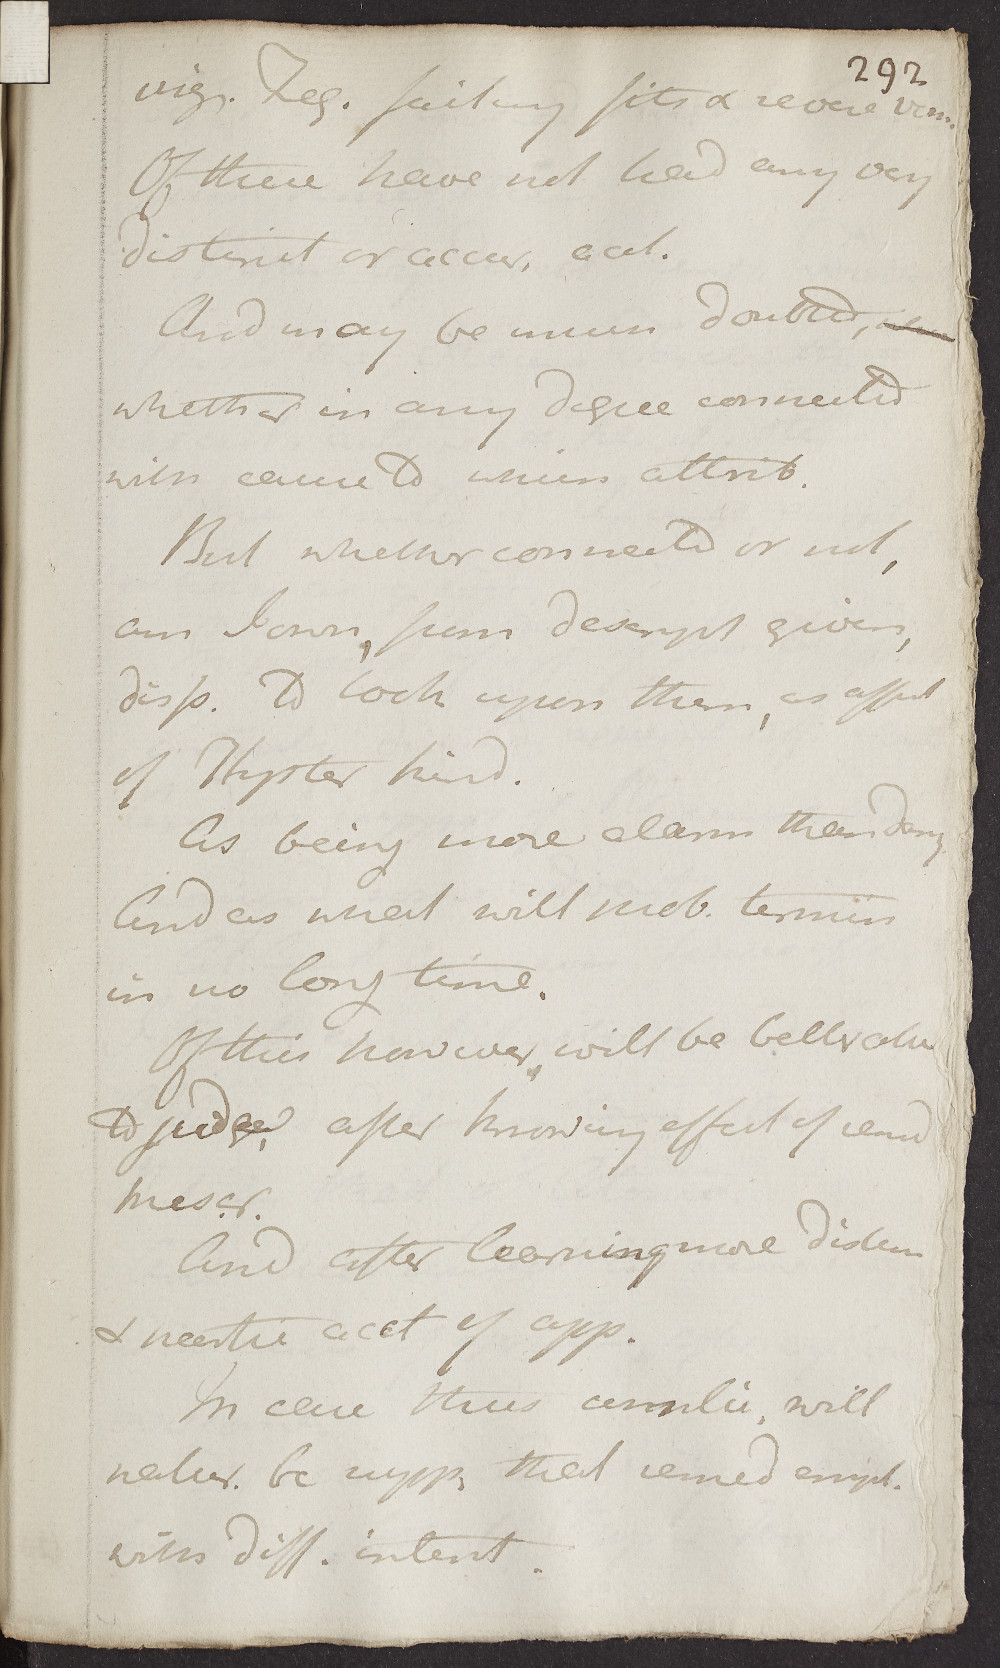 292
viz. Feq. fainting fits & severe vom.
Of these have not head any very
distinct or accur. acct.
And may be much doubted,
whether in any degree connected
with cause to which attrib.
But whether connected or not,
am I own, from descript given,
disp. to look upon them, as affect
of Hyster kind.
As being more alarm than dang.
And as what will prob. termin
in no long time.
Of this however, will be better able
to judge, after knowing effect of
measr.
And after learning more distem
& acct of app.
In case thus complic. will
natur. be supp. that remed empl.
with diff. intent.